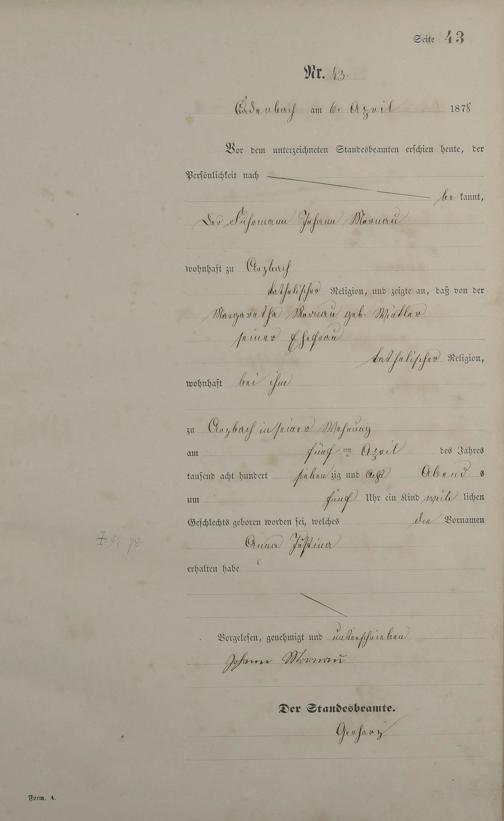 Seite 43
Nr. 43.
am 6. April 1878
Vor dem unterzeichneten Standesbeamten erschien heute, der
Persönlichkeit nach
be kannt,
der Fuhrmann Johann Mornau
wohnhaft zu Arzbach
katholischer Religion, und zeigte an, daß von der
Margaretha Mornau geb.
seiner Ehefrau
katholischer Religion,
wohnhaft bei ihm
zu Arzbach in seiner Wohnung
am fünf ten April des Jahres
tausend acht hundert sieben zig und acht Abend s
um fünf Uhr ein Kind weib lichen
Geschlechts geboren worden sei, welches die Vornamen
Anna Justina
erhalten habe
Vorgelesen, genehmigt und unterschrieben
Johann Mornau
Der Standesbeamte.
Form. A.